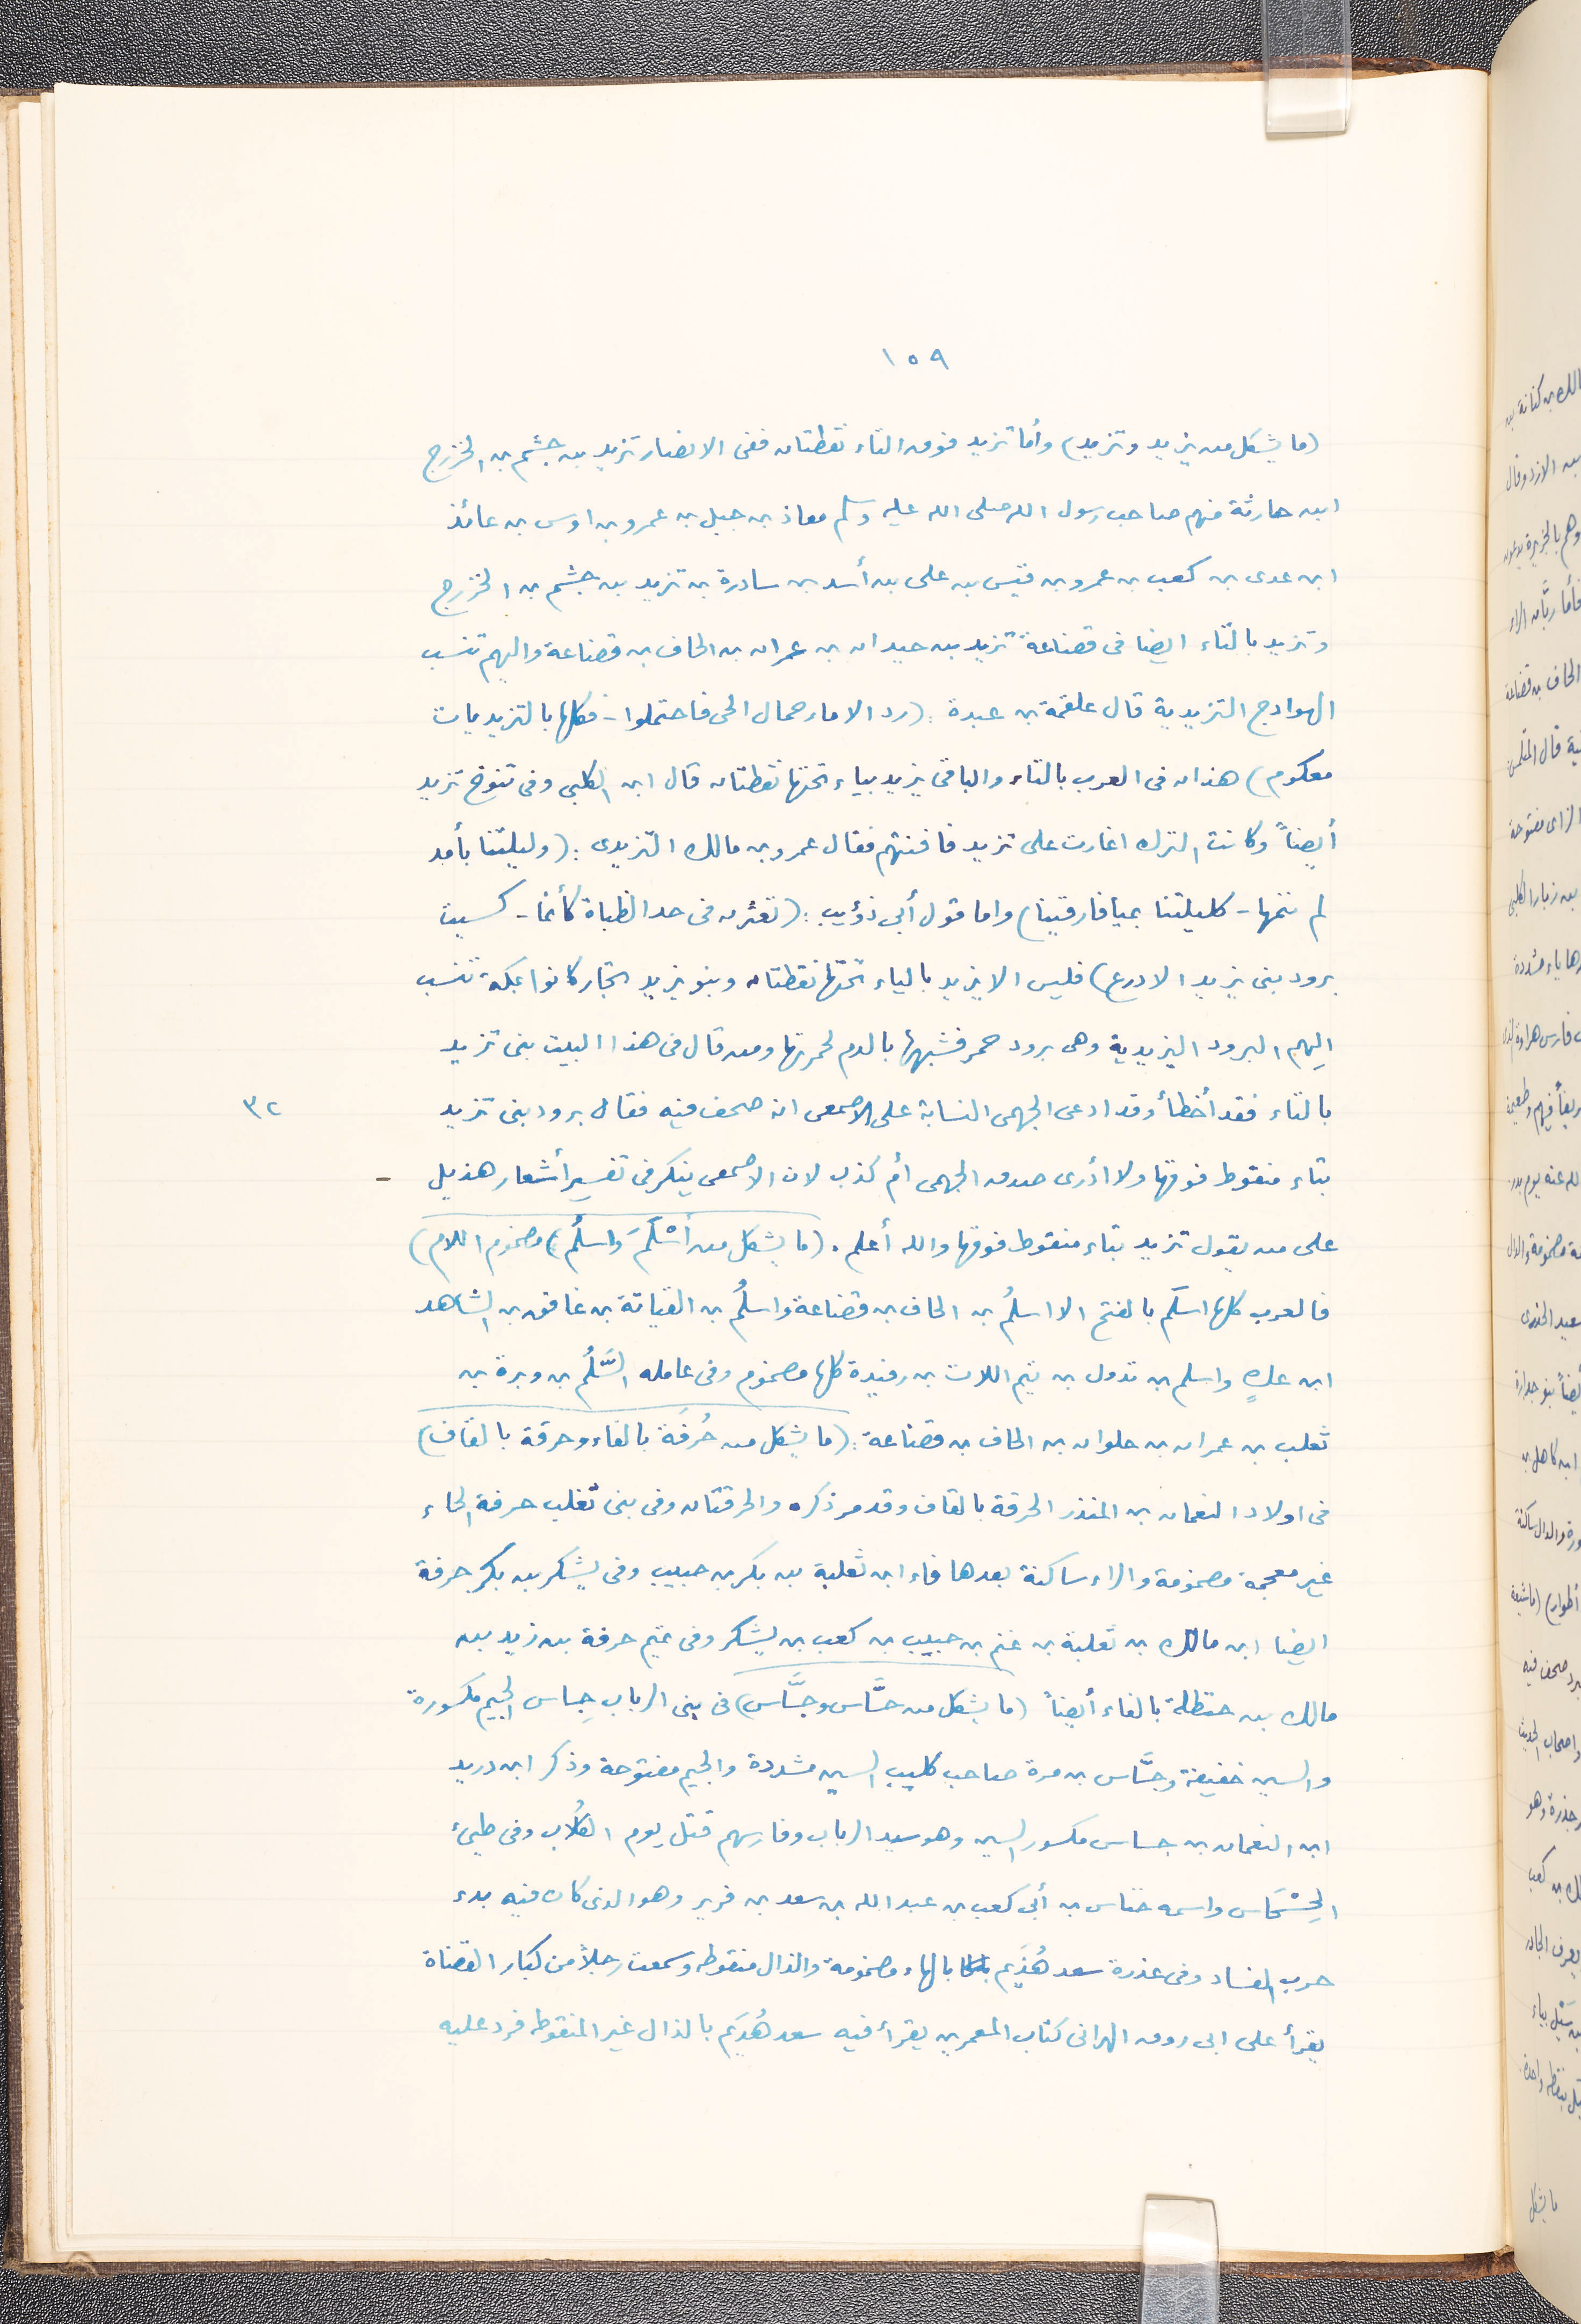 ١٥٩
(ما يشكل من يزيد وتزيد) وأما تزيد فوق التاء نقطتان ففى الانصار تزيد بن جشم بن الخزرج
ابن حارثة منهم صاحب رسول الله صلى الله عليه وسلم معاذ بن جبل بن عمرو بن اوس بن عائذ
ابن عدى بن كعب بن عمرو بن قيس بن على بن أسد بن سادرة بن تزيد بن جشم بن الخزرج
وتزيد بالتاء ايضا فى قضاعة تزيد بن حيدان بن عمران بن الحاف بن قضاعة واليهم تنسب
الهوادج التزيدية قال علقمة بن عبدة : (رد الاماء جمال الحى فاحتملوا - فكلها بالتزيديات
معكوم) هذان فى العرب بالتاء والباقى يزيد بياء تحتها نقطتان قال ابن الكلبى وفى تنوخ تزيد
أيضاً وكانت الترك اغارت على تزيد فافنتهم فقال عمرو بن مالك التزيدى : (وليلتنا بآمد
لم ننمها - كليلتنا بميافارقينا) واما قول أبى ذؤيب : (تعثرن فى حد الظباة كأنما - كسيت
برود بنى يزيد الادرع) فليس الا يزيد بالياء تحتها نقطتان وبنو يزيد تجار كانوا بمكة تنسب
اليهم البرود اليزيدية وهى برود حمر فشبهها بالدم لحمرتها ومن قال فى هذا البيت بنى تزيد
بالتاء فقد أخطأ وقد ادعى الجهمى النسابة على الاصمعى انه صحف فيه فقال برود بنى تزيد ٣٢
بتاء منقوط فوقها ولا ادرى صدق الجهمى أم كذب لان الاصمعى ينكر فى تفسير أشعار هذيل -
على من يقول تزيد بتاء منقوط فوقها والله أعلم . (ما يشكل من أسْلَمَ وَاسلُم) مضموم اللام)
فالعرب كلها اسلَم بالفتح الا اسلُم بن الحاف بن قضاعة واسلُم بن القياتة بن غافق بن الشاهد
ابن عكٍ واسلم بن تدول بن تيم اللات بن رفيدة كلها مضموم وفى عامله السَّلُم بن وبرة بن
ثعلب بن عمران بن حلوان بن الحاف بن قضاعة : (ما يشكل من حُرفَة بالفاء وحرقة بالقاف)
فى اولاد النعمان بن المنذر الحرقة بالقاف وقد مر ذكره والحرقتان وفى بنى تغلب حرفة الحاء
غير معجمة مضمومة والراء ساكنة بعدها فاء ابن ثعلبة بن بكر بن حبيب وفى يشكر بن بكر حرفة
ايضا ابن مالك بن ثعلبة بن غنم بن حبيب بن كعب بن يشكر وفى تميم حرفة بن زيد بن
مالك بن حنظلة بالفاء أيضاً (ما يشكل من حسَّاس وجسَّاس) فى بنى الرباب جِساس الجيم مكسورة
والسين خفيفة وجسَّاس بن مرة صاحب كليب السين مشددة والجيم مفتوحة وذكر ابن دريد
ابن النعمان بن جساس مكسور السين وهو سيد الرباب وفارسهم قتل يوم الكُلاب وفى طيئ
الحِسْحَاس واسمه خناس بن أبى كعب بن عبد الله بن سعد بن فرير وهو الذى كان فيه بدء
حرب الفساد وفى عذرة سعد هُذَيم بالهاء مضمومة والذال منقوطه وسمعت رجلاً من كبار القضاة
يقرأ على ابى روق الهزانى كتاب المعمرين يقرأ فيه سعد هُدَيم بالدال غير المنقوطه فرد عليه